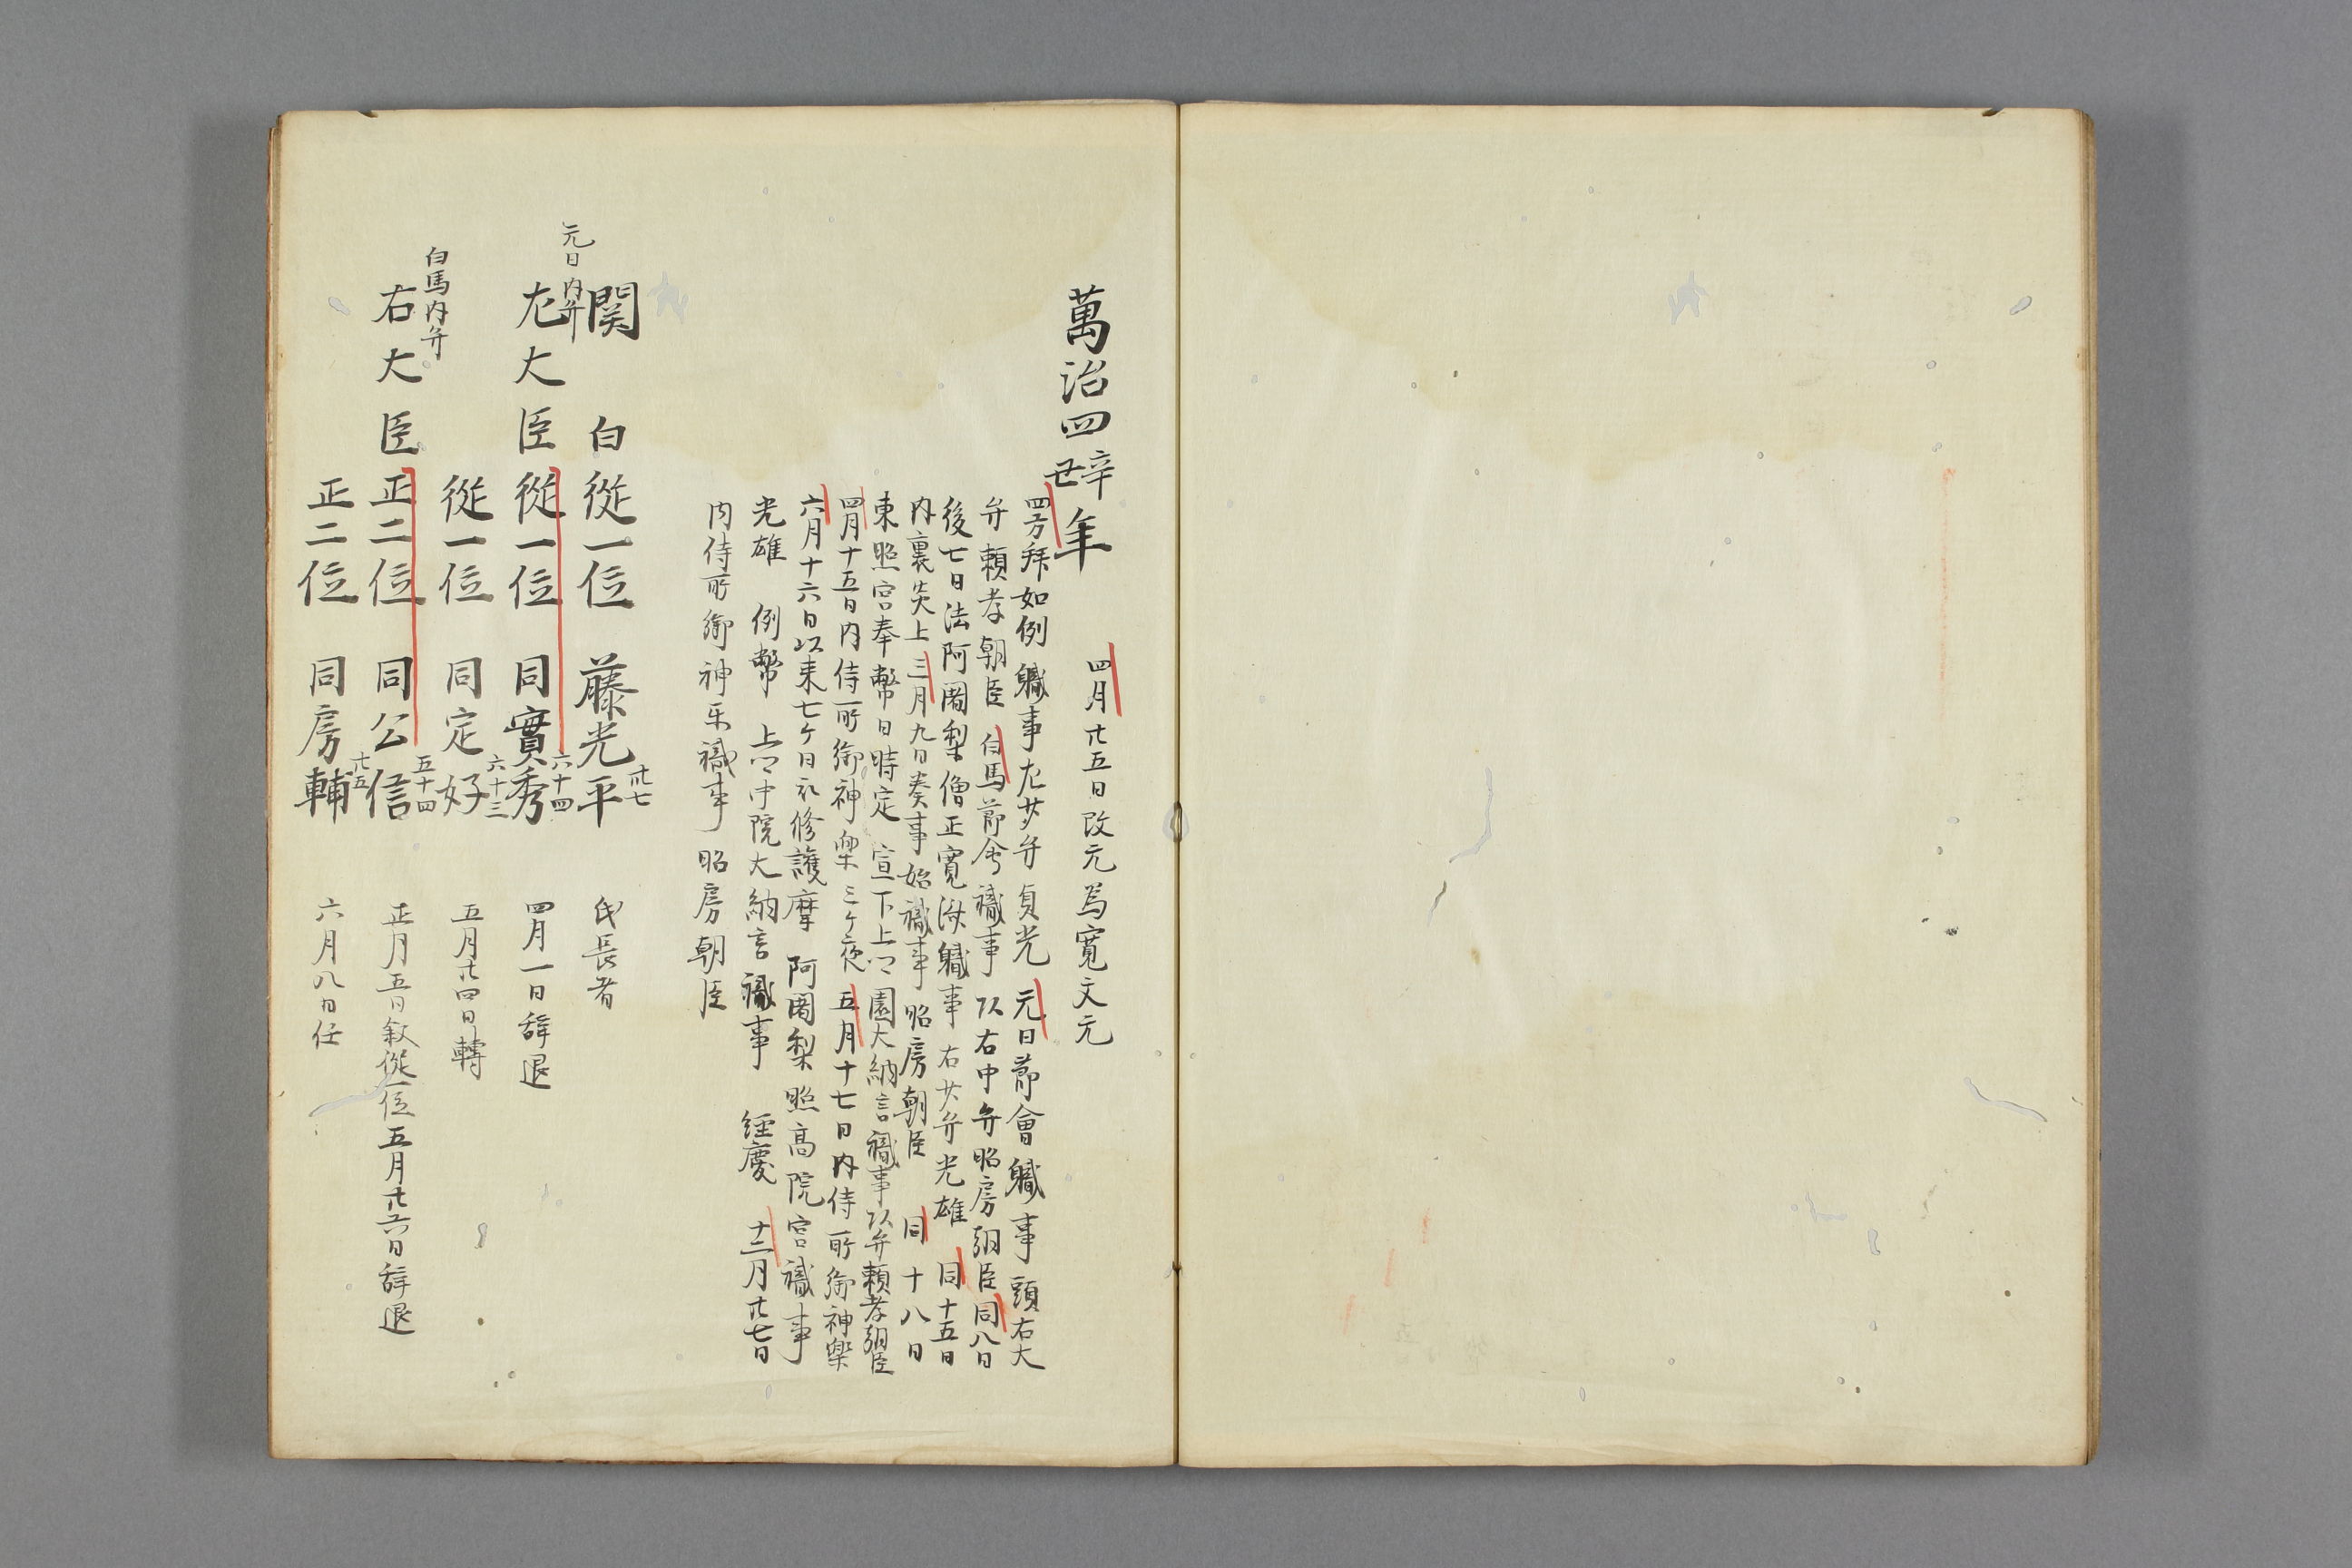 萬治四辛丑年　四月廿五日改元為寛文元
四方拜如例 職事左少弁貞光 元日節會職事頭右大
弁頼孝朝臣 白馬節會職事 以右中弁昭房朝臣 同八日
後七日法阿闍梨僧正寛済 職事右少弁光雄 同十五日
内裏炎上 三月九日奏事始職事昭房朝臣 同十八日
東照宮奉幣日時定 宣下上卿園大納言職事頭弁頼孝朝臣
四月十五日内侍所御神樂三ケ夜 五月十七日内侍所御神樂
六月十六日以来七ケ日被修護摩 阿闍梨照高院宮職事
光雄 例幣 上卿中院大納言職事 経慶 十二月廿七日
内侍所御神樂職事昭房朝臣
関白從一位 藤光平 卅七 氏長者
元日内弁
左大臣從一位 同實秀 六十四 四月一日辞退
從一位 同定好 六十三 五月廿四日轉
白馬内弁
右大臣正二位 同公信 五十四 正月五日叙從一位 五月廿六日辞退
正二位 同房輔 廿五 六月八日任